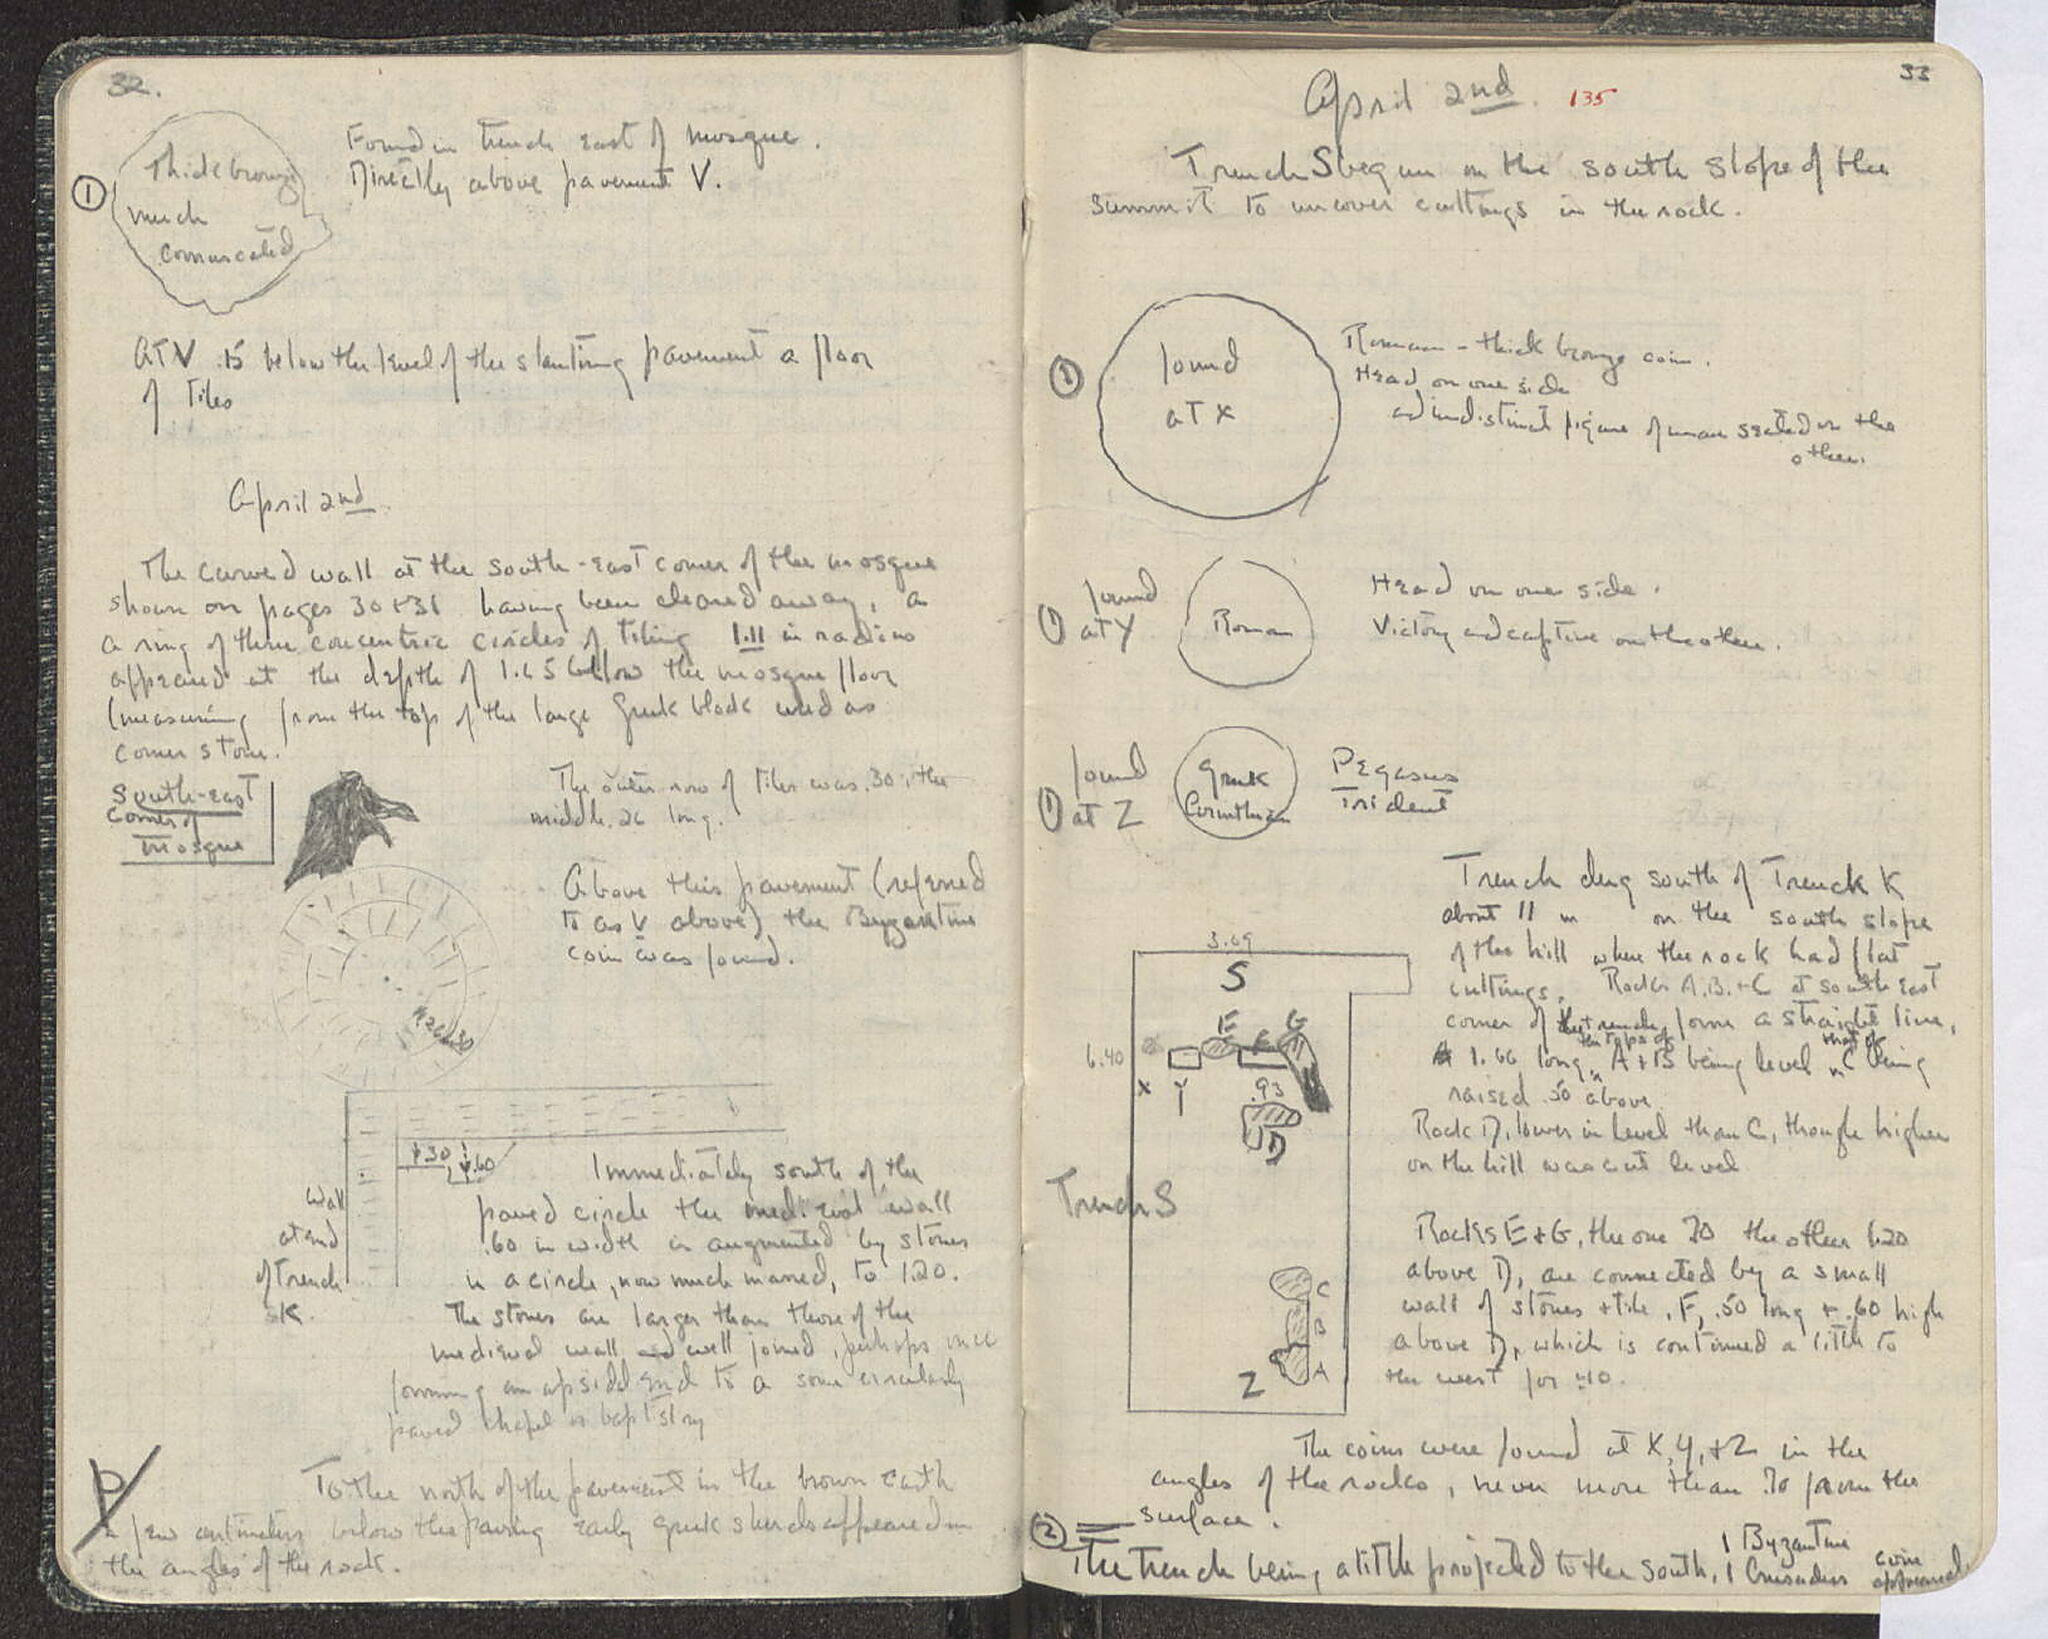 32.
①
Thick bronze
much
corruscated
Found in trench east of mosque.
Directly above pavement V.
At V .15 below the level of the slanting pavement a floor
of tiles
April 2nd.
The curved wall at the south-east corner of the mosque
shown on pages 30 + 31 having been cleared away, a
a ring of three concentric circles of tiling 1.11 in radius
appeared at the depth of 1.65 below the mosque floor
(measuring from the top of the large Greek block used as
corner stone.
South-east
Corner of
Mosque
The outer row of tiles was .30, the
middle .26 long.
Above this pavement (referred
to as V above), the Byzantine
coin was found.
.26
.30
.30
.60
wall
at end
of Trench
K.
Immediately south of the
paved circle the medieval wall
.60 in width is augmented by stones
in a circle, now much marred, to 1.20.
The stones are larger than those of the
medieval wall and well joined, perhaps once
forming an apsidal end to a some circularly
paved chapel or baptistry
P
To the north of the pavement in the brown earth
a few centimeters below the paving early Greek sherds appeared in
the angles of the rock.
33
April 2nd. 135
Trench S begun on the south slope of the
summit to uncover cuttings in the rock.
①
found
at X
Roman - thick bronze coin.
Head on one side
and indistinct figure of man seated on the
other.
① found
at Y
Roman
Head on one side.
Victory and captive on the other.
① found
at Z
Greek
Corinthian
Pegasus
Trident
Trench dug south of Trench K
about 11 m on the south slope
of the hill where the rock had flat
cuttings. Rocks A, B, + C at south east
corner of the trench, form a straight line,
1.66 long, the tops of A + B being level, that of C being
raised .50 above.
Rock D, lower in level than C, though higher
on the hill was cut level
3.09
S
E
F
G
6.40
X
Y
.93
D
Trench S
C
B
A
Z
Rocks E + G, the one 20 the other 1.20
above D, are connected by a small
wall of stones + tile, F, .50 long + .60 high
above D, which is continued a little to
the west for .40.
The coins were found at X, Y, + Z in the
angles of the rocks, never more than .70 from the
surface.
②
The trench being a little projected to the south, 1 Byzantine
1 Crusaders coin
appeared.